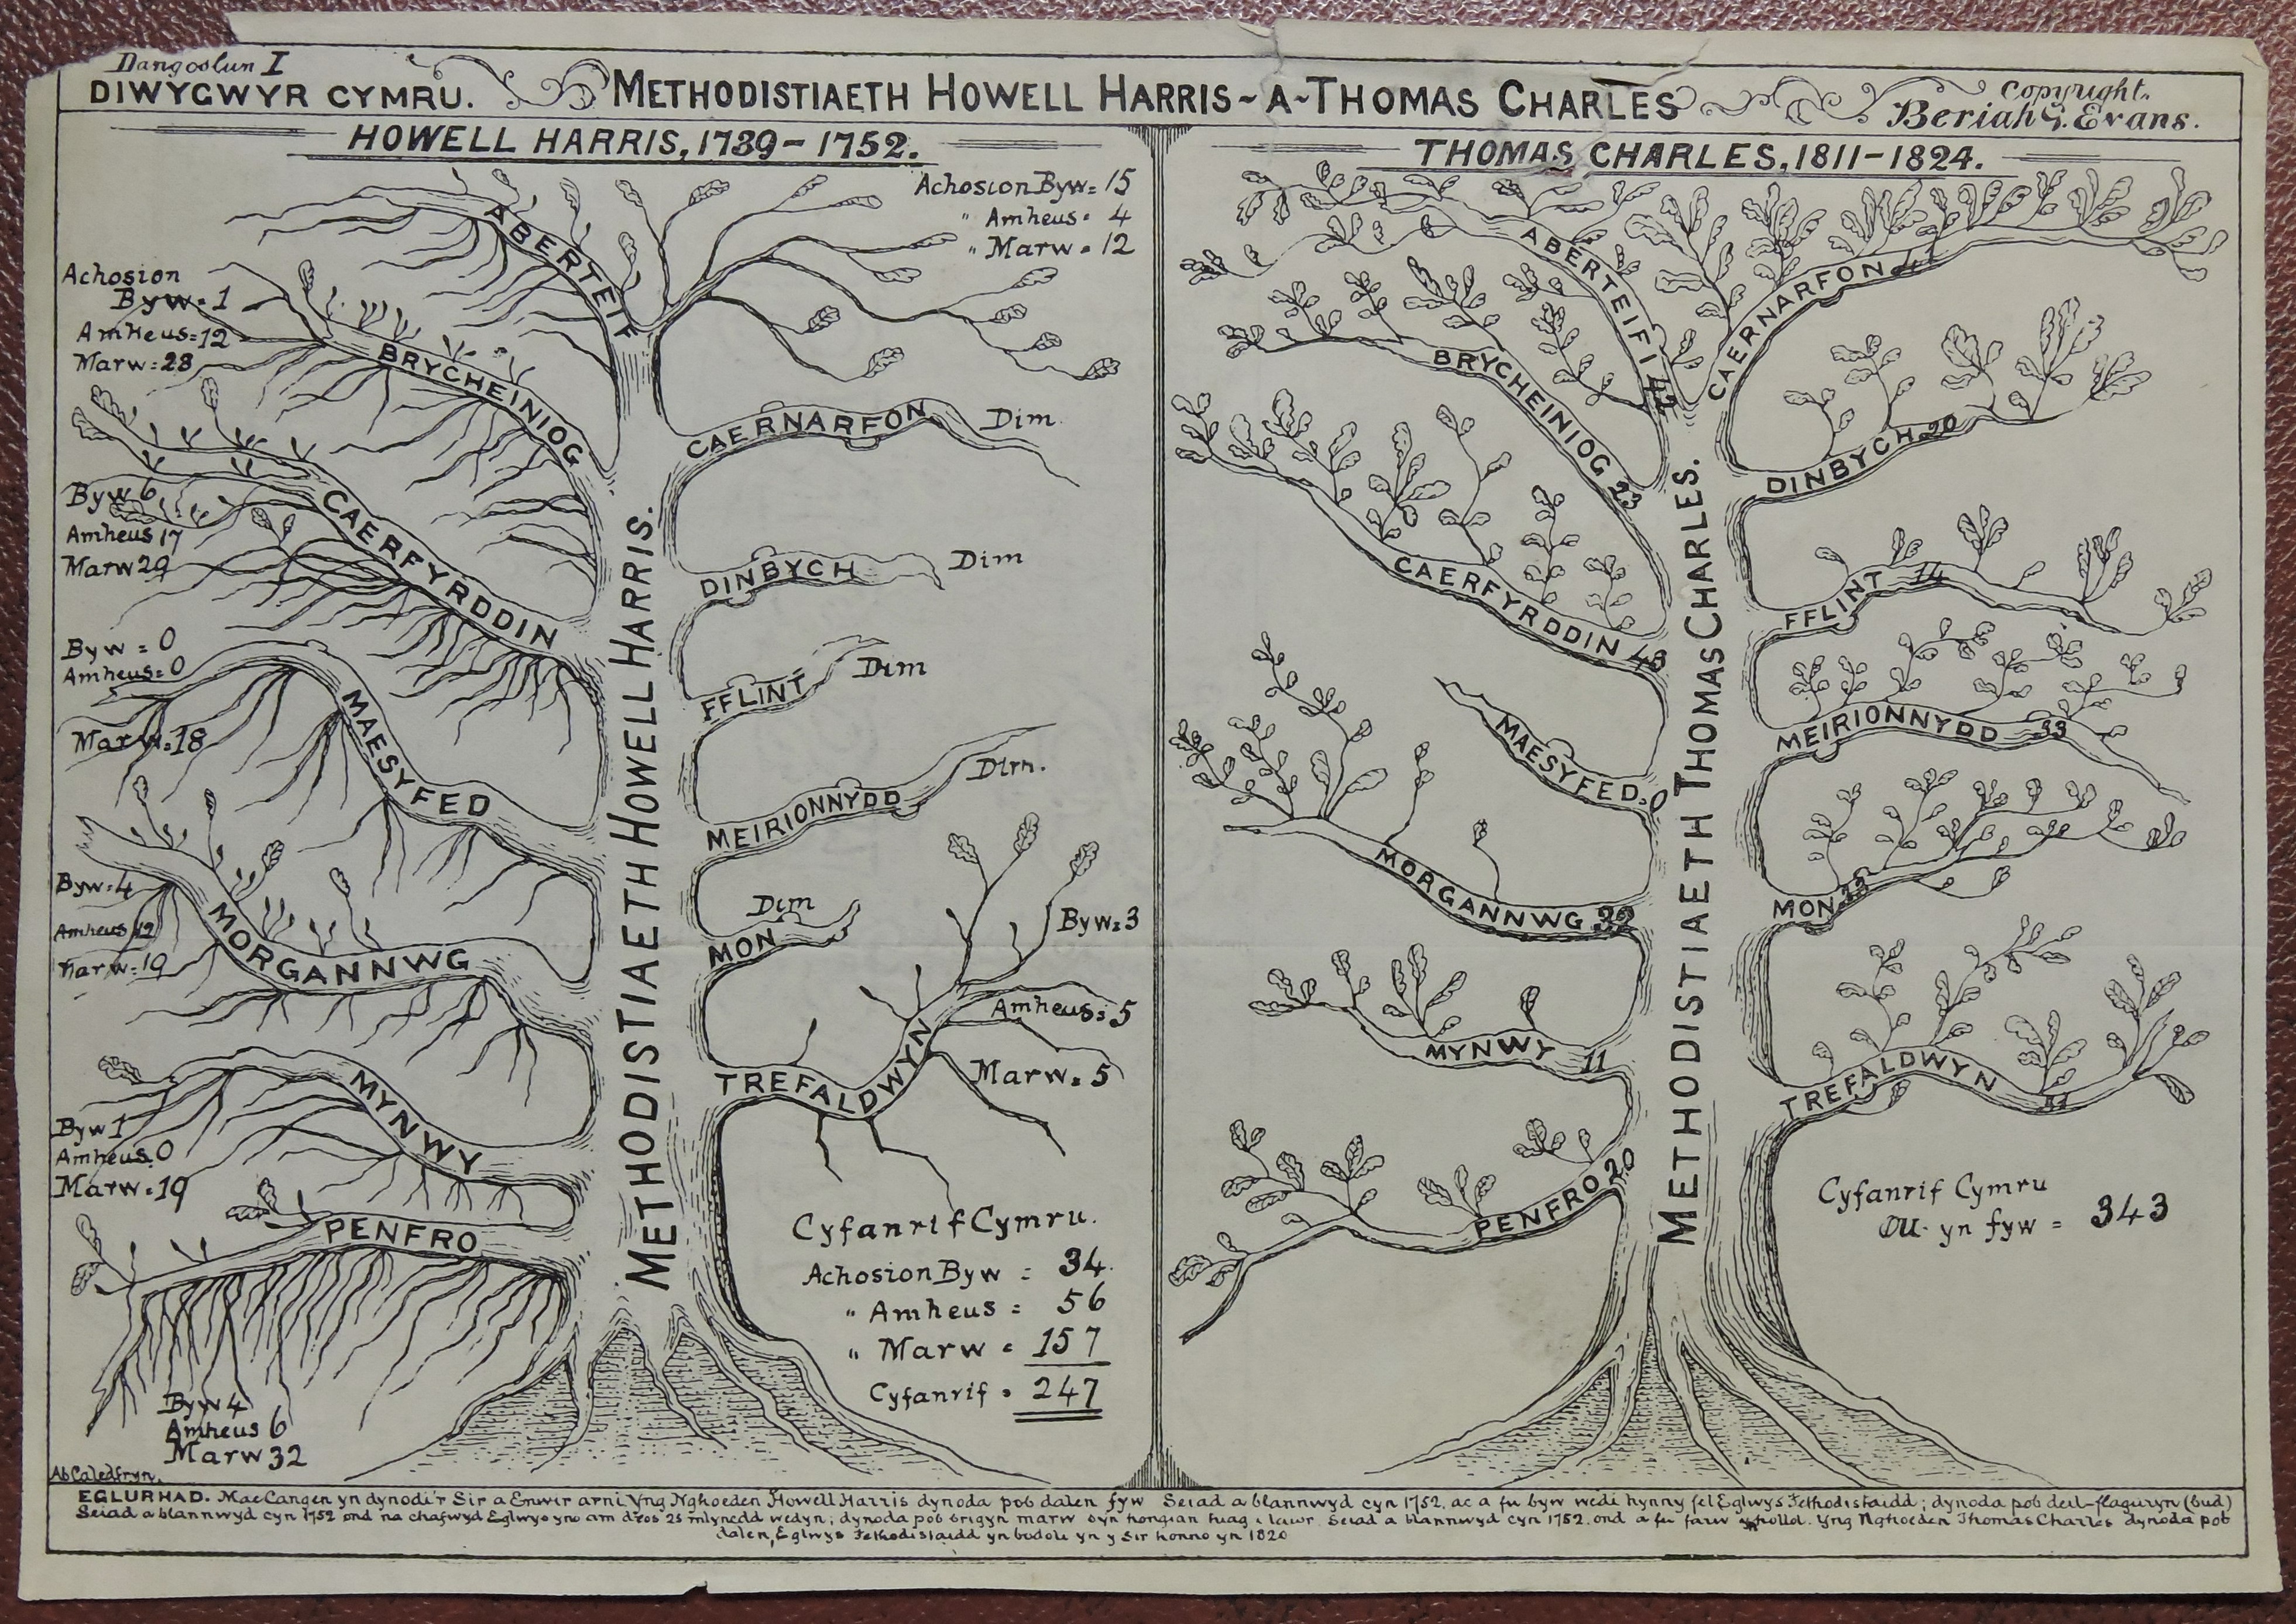 Dangoslun I
DIWYGWYR CYMRU.
METHODISTIAETH HOWELL HARRIS ~ A ~ THOMAS CHARLES
Copyright.
Beriah G. Evans.
HOWELL HARRIS, 1739 - 1752.
Achosion Byw = 15
" Amheus = 4
" Marw = 12
ABERTEIFI
Achosion
Byw = 1
Amheus = 12
Marw = 28
BRYCHEINIOG
CAERNARFON
Dim
Byw 6
Amheus 17
Marw 29
CAERFYRDDIN
DINBYCH
Dim
Byw = 0
Amheus = 0
Marw = 18
MAESYFED
FFLINT
Dim
MEIRIONNYDD
Dim.
Byw = 4
Amheus 12
Marw = 19
MORGANNWG
MON
Dim
Byw = 3
Amheus = 5
Marw = 5
TREFALDWYN
MYNWY
Byw 1
Amheus 0
Marw = 19
PENFRO
Byw 4
Amheus 6
Marw 32
METHODISTIAETH HOWELL HARRIS.
Cyfanrif Cymru.
Achosion Byw = 34.
" Amheus = 56
" Marw = 157
Cyfanrif = 247
Ab Caledfryn.
THOMAS CHARLES, 1811 - 1824.
ABERTEIFI 42
CAERNARFON 47
BRYCHEINIOG 23
DINBYCH 20
CAERFYRDDIN 48
FFLINT 14
MAESYFED. 0
MEIRIONNYDD 33
MORGANNWG 32
MON 33
MYNWY 11
TREFALDWYN
PENFRO 20
METHODISTIAETH THOMAS CHARLES.
Cyfanrif Cymru
Oll yn fyw = 343
EGLURHAD. Mae Cangen yn dynodi'r Sir a Enwir arni. Yng Nghoeden Howell Harris dynoda pob dalen fyw Seiad a blannwyd cyn 1752, ac a fu byw wedi hynny fel Eglwys Fethodistaidd; dynoda pob deil-flaguryn (bud)
Seiad a blannwyd cyn 1752 ond na chafwyd Eglwys yno am dros 25 mlynedd wedyn; dynoda pob brigyn marw syn hongian tuag i lawr Seiad a blannwyd cyn 1752, ond a fu farw yn hollol. Yng Nghoeden Thomas Charles dynoda pob
dalen, Eglwys Fethodistaidd yn bodoli yn y Sir honno yn 1820